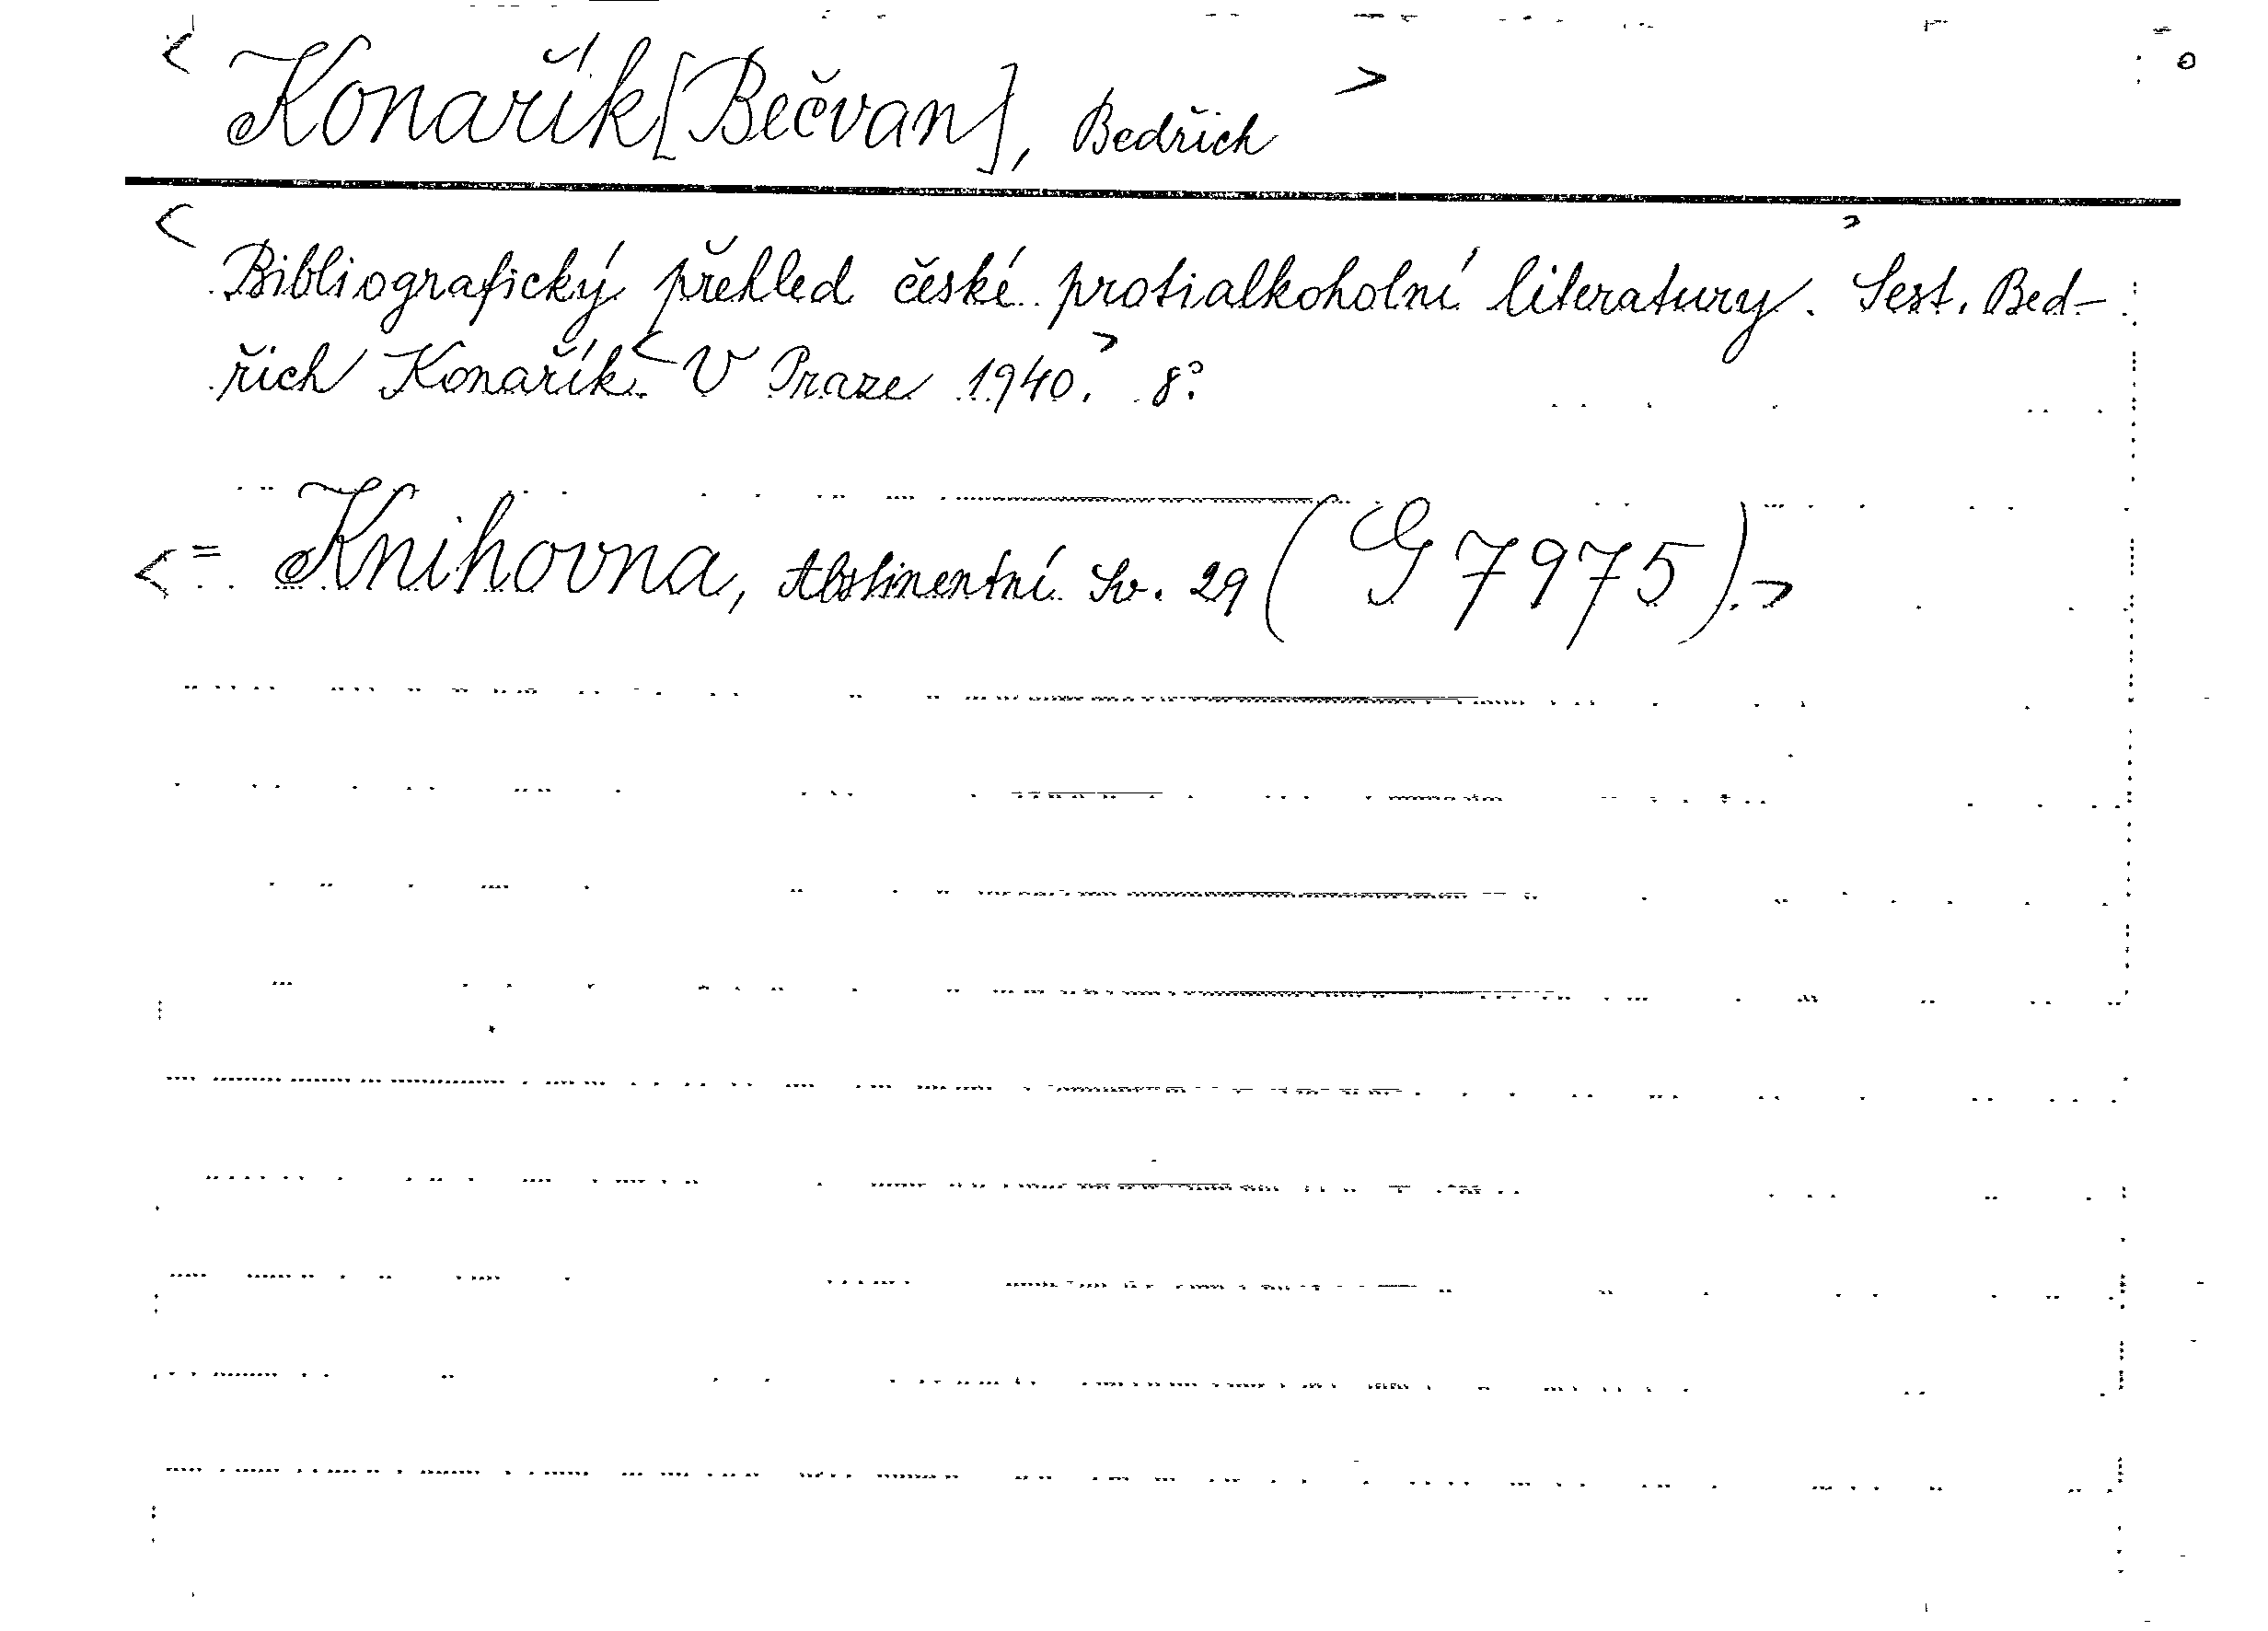 < Konařík [Bečvan], Bedřich >
< Bibliografický přehled české protialkoholní literatury. > Sest. Bed-
řich Konařík. < V Praze 1940. > 8°.
< = Knihovna, Abstinentní Sv. 29 (G 7975). >